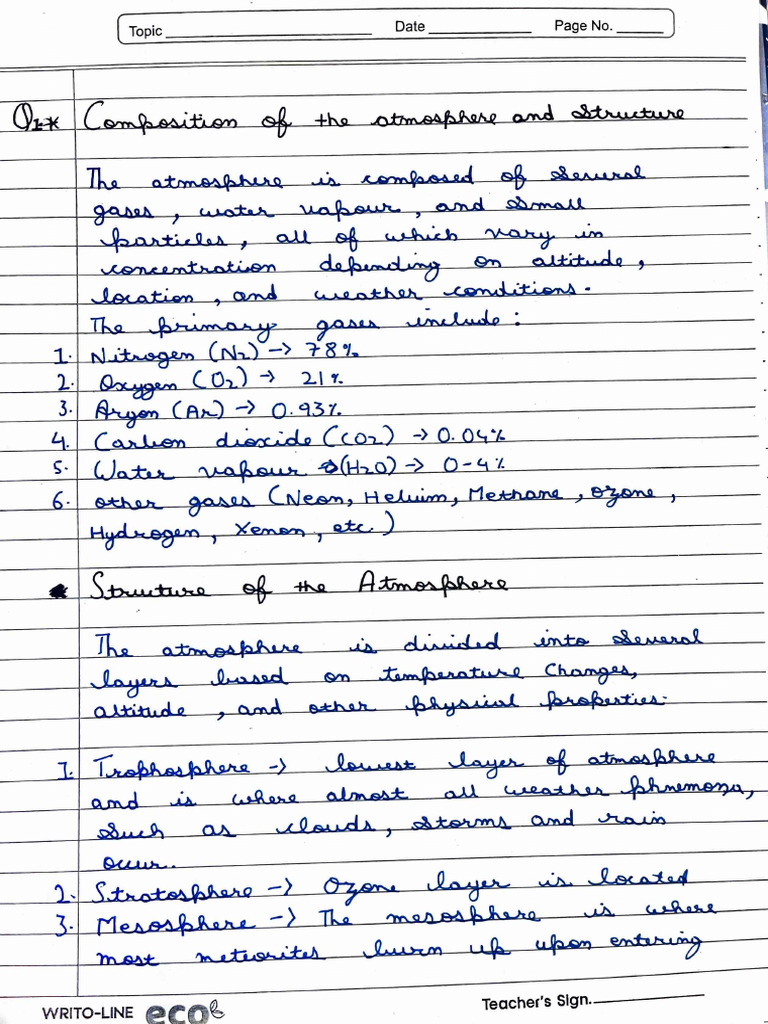 Topic Date Page No.
Q1* Composition of the atmosphere and Structure
The atmosphere is composed of several
gases, water vapour, and small
particles, all of which vary in
concentration depending on altitude,
location, and weather conditions.
The primary gases include:
1. Nitrogen (N2) → 78%
2. Oxygen (O2) → 21%
3. Argon (Ar) → 0.93%
4. Carbon dioxide (CO2) → 0.04%
5. Water vapour (H2O) → 0-4%
6. other gases (Neon, Heluim, Methane, ozone,
Hydrogen, Xenon, etc.)
* Structure of the Atmosphere
The atmosphere is divided into several
layers based on temperature changes,
altitude, and other physical properties.
1. Trophosphere → lowest layer of atmosphere
and is where almost all weather phnemona,
such as clouds, storms and rain
occur.
2. Stratosphere → Ozone layer is located
3. Mesosphere → The mesosphere is where
most meteorites burn up upon entering
WRITO-LINE eco Teacher's Sign.